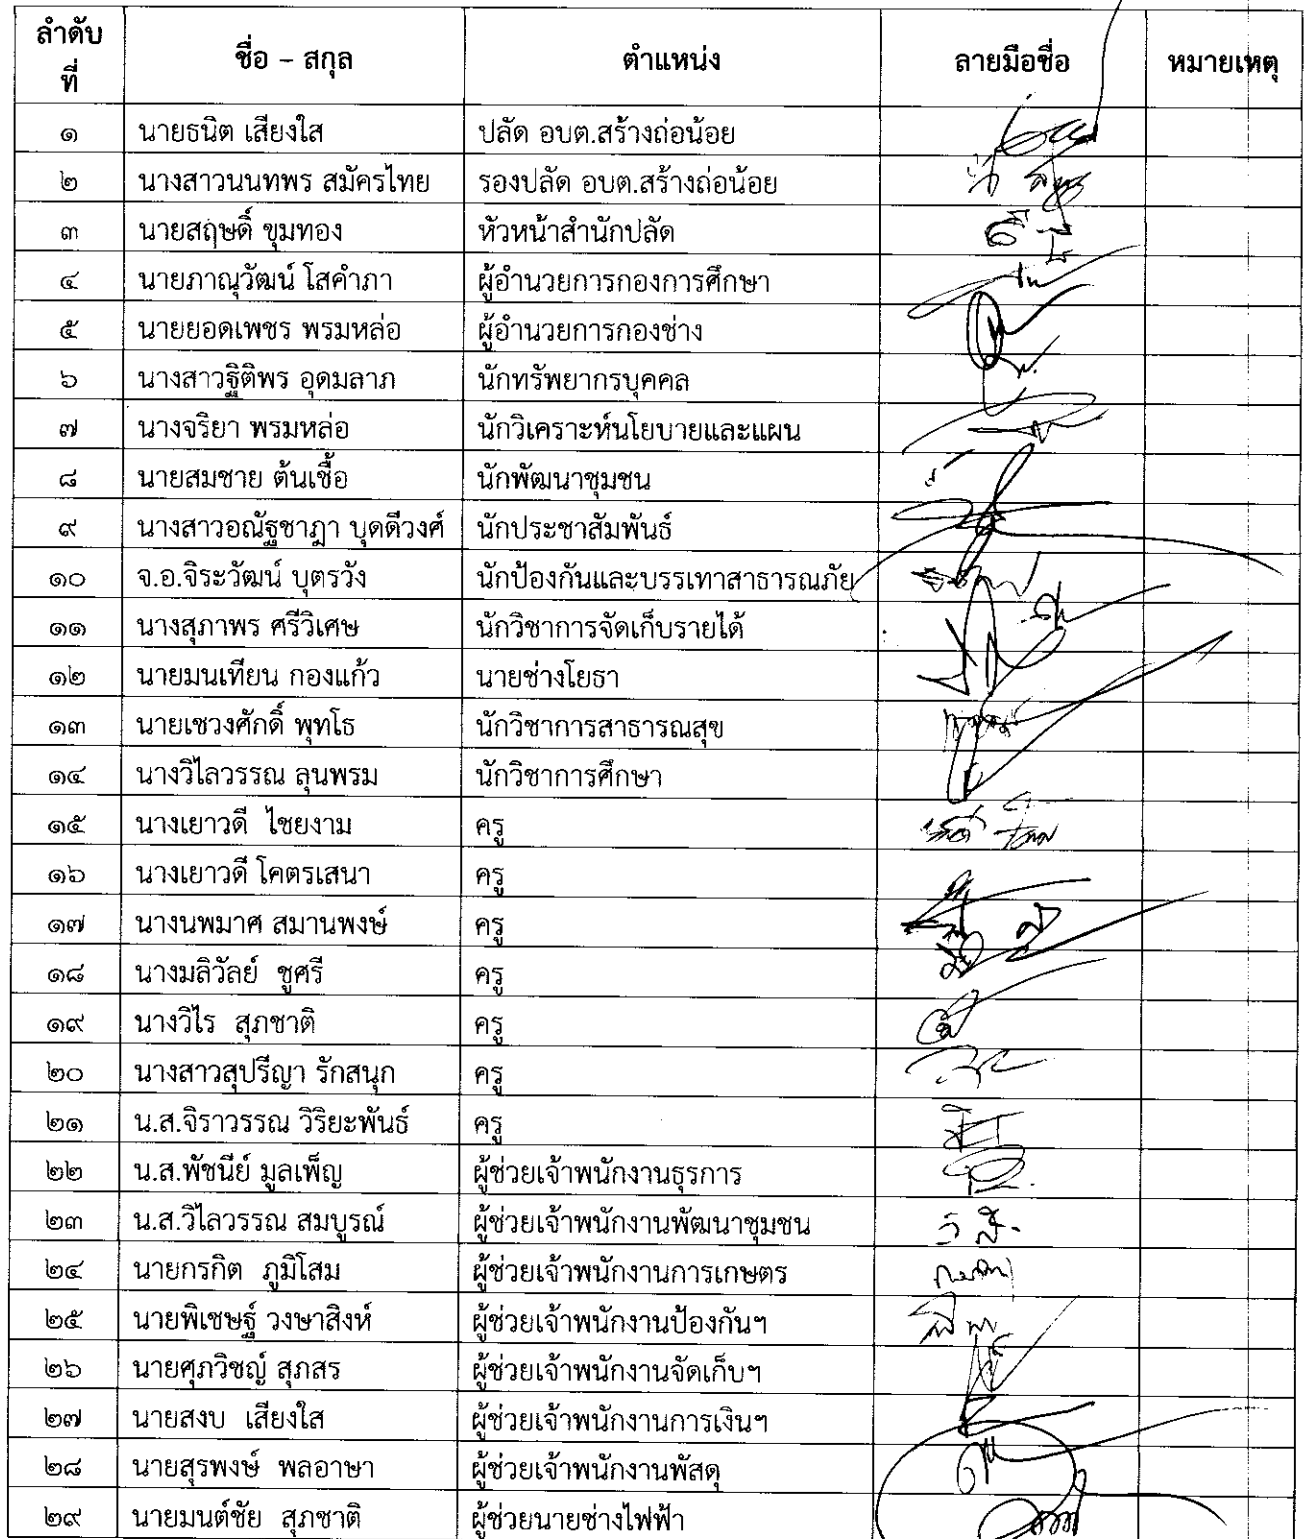 ลำดับที่ ชื่อ – สกุล ตำแหน่ง ลายมือชื่อ หมายเหตุ
๑ นายธนิต เสียงใส ปลัด อบต.สร้างถ่อน้อย
๒ นางสาวนนทพร สมัครไทย รองปลัด อบต.สร้างถ่อน้อย
๓ นายสฤษดิ์ ขุมทอง หัวหน้าสำนักปลัด
๔ นายภาณุวัฒน์ โสคำภา ผู้อำนวยการกองการศึกษา
๕ นายยอดเพชร พรมหล่อ ผู้อำนวยการกองช่าง
๖ นางสาวฐิติพร อุดมลาภ นักทรัพยากรบุคคล
๗ นางจริยา พรมหล่อ นักวิเคราะห์นโยบายและแผน
๘ นายสมชาย ต้นเชื้อ นักพัฒนาชุมชน
๙ นางสาวอณัฐชาฎา บุดดีวงศ์ นักประชาสัมพันธ์
๑๐ จ.อ.จิระวัฒน์ บุตรวัง นักป้องกันและบรรเทาสาธารณภัย
๑๑ นางสุภาพร ศรีวิเศษ นักวิชาการจัดเก็บรายได้
๑๒ นายมนเทียน กองแก้ว นายช่างโยธา
๑๓ นายเชวงศักดิ์ พุทโธ นักวิชาการสาธารณสุข
๑๔ นางวิไลวรรณ ลุนพรม นักวิชาการศึกษา
๑๕ นางเยาวดี ไชยงาม ครู
๑๖ นางเยาวดี โคตรเสนา ครู
๑๗ นางนพมาศ สมานพงษ์ ครู
๑๘ นางมลิวัลย์ ชูศรี ครู
๑๙ นางวิไร สุภชาติ ครู
๒๐ นางสาวสุปรีญา รักสนุก ครู
๒๑ น.ส.จิราวรรณ วิริยะพันธ์ ครู
๒๒ น.ส.พัชนีย์ มูลเพ็ญ ผู้ช่วยเจ้าพนักงานธุรการ
๒๓ น.ส.วิไลวรรณ สมบูรณ์ ผู้ช่วยเจ้าพนักงานพัฒนาชุมชน
๒๔ นายกรกิต ภูมิโสม ผู้ช่วยเจ้าพนักงานการเกษตร
๒๕ นายพิเชษฐ์ วงษาสิงห์ ผู้ช่วยเจ้าพนักงานป้องกันฯ
๒๖ นายศุภวิชญ์ สุภสร ผู้ช่วยเจ้าพนักงานจัดเก็บฯ
๒๗ นายสงบ เสียงใส ผู้ช่วยเจ้าพนักงานการเงินฯ
๒๘ นายสุรพงษ์ พลอาษา ผู้ช่วยเจ้าพนักงานพัสดุ
๒๙ นายมนต์ชัย สุภชาติ ผู้ช่วยนายช่างไฟฟ้า